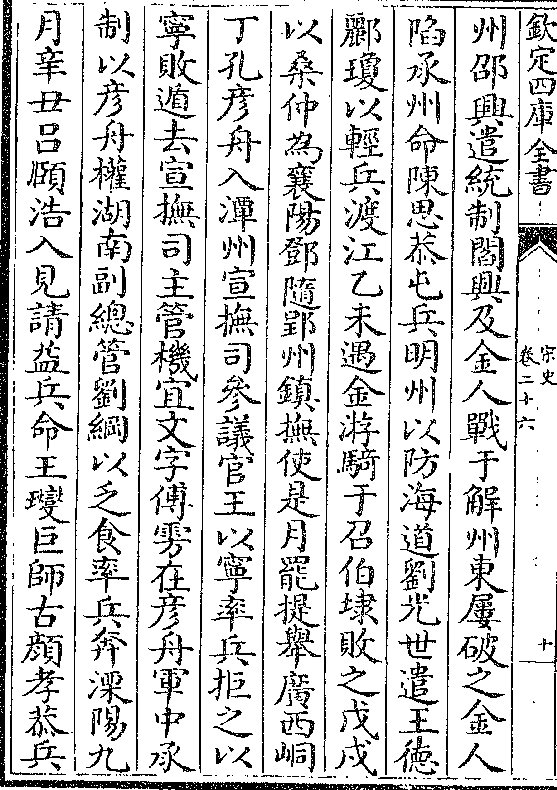 欽定四庫全書
宋史
卷二十六
十
州邵興遣統制閻興及金人戰于解州東屢破之金人
陷承州命陳思恭屯兵明州以防海道劉光世遣王德
酈瓊以輕兵渡江乙未遇金游騎于召伯埭敗之戊戌
以桑仲為襄陽鄧隨郢州鎮撫使是月罷提舉廣西峒
丁孔彦舟入潭州宣撫司參議官王以寧率兵拒之以
寧敗遁去宣撫司主管機宜文字傅雱在彦舟軍中承
制以彦舟權湖南副總管劉綱以乏食率兵奔溧陽九
月辛丑吕頤浩入見請益兵命王𤫉巨師古顔孝恭兵